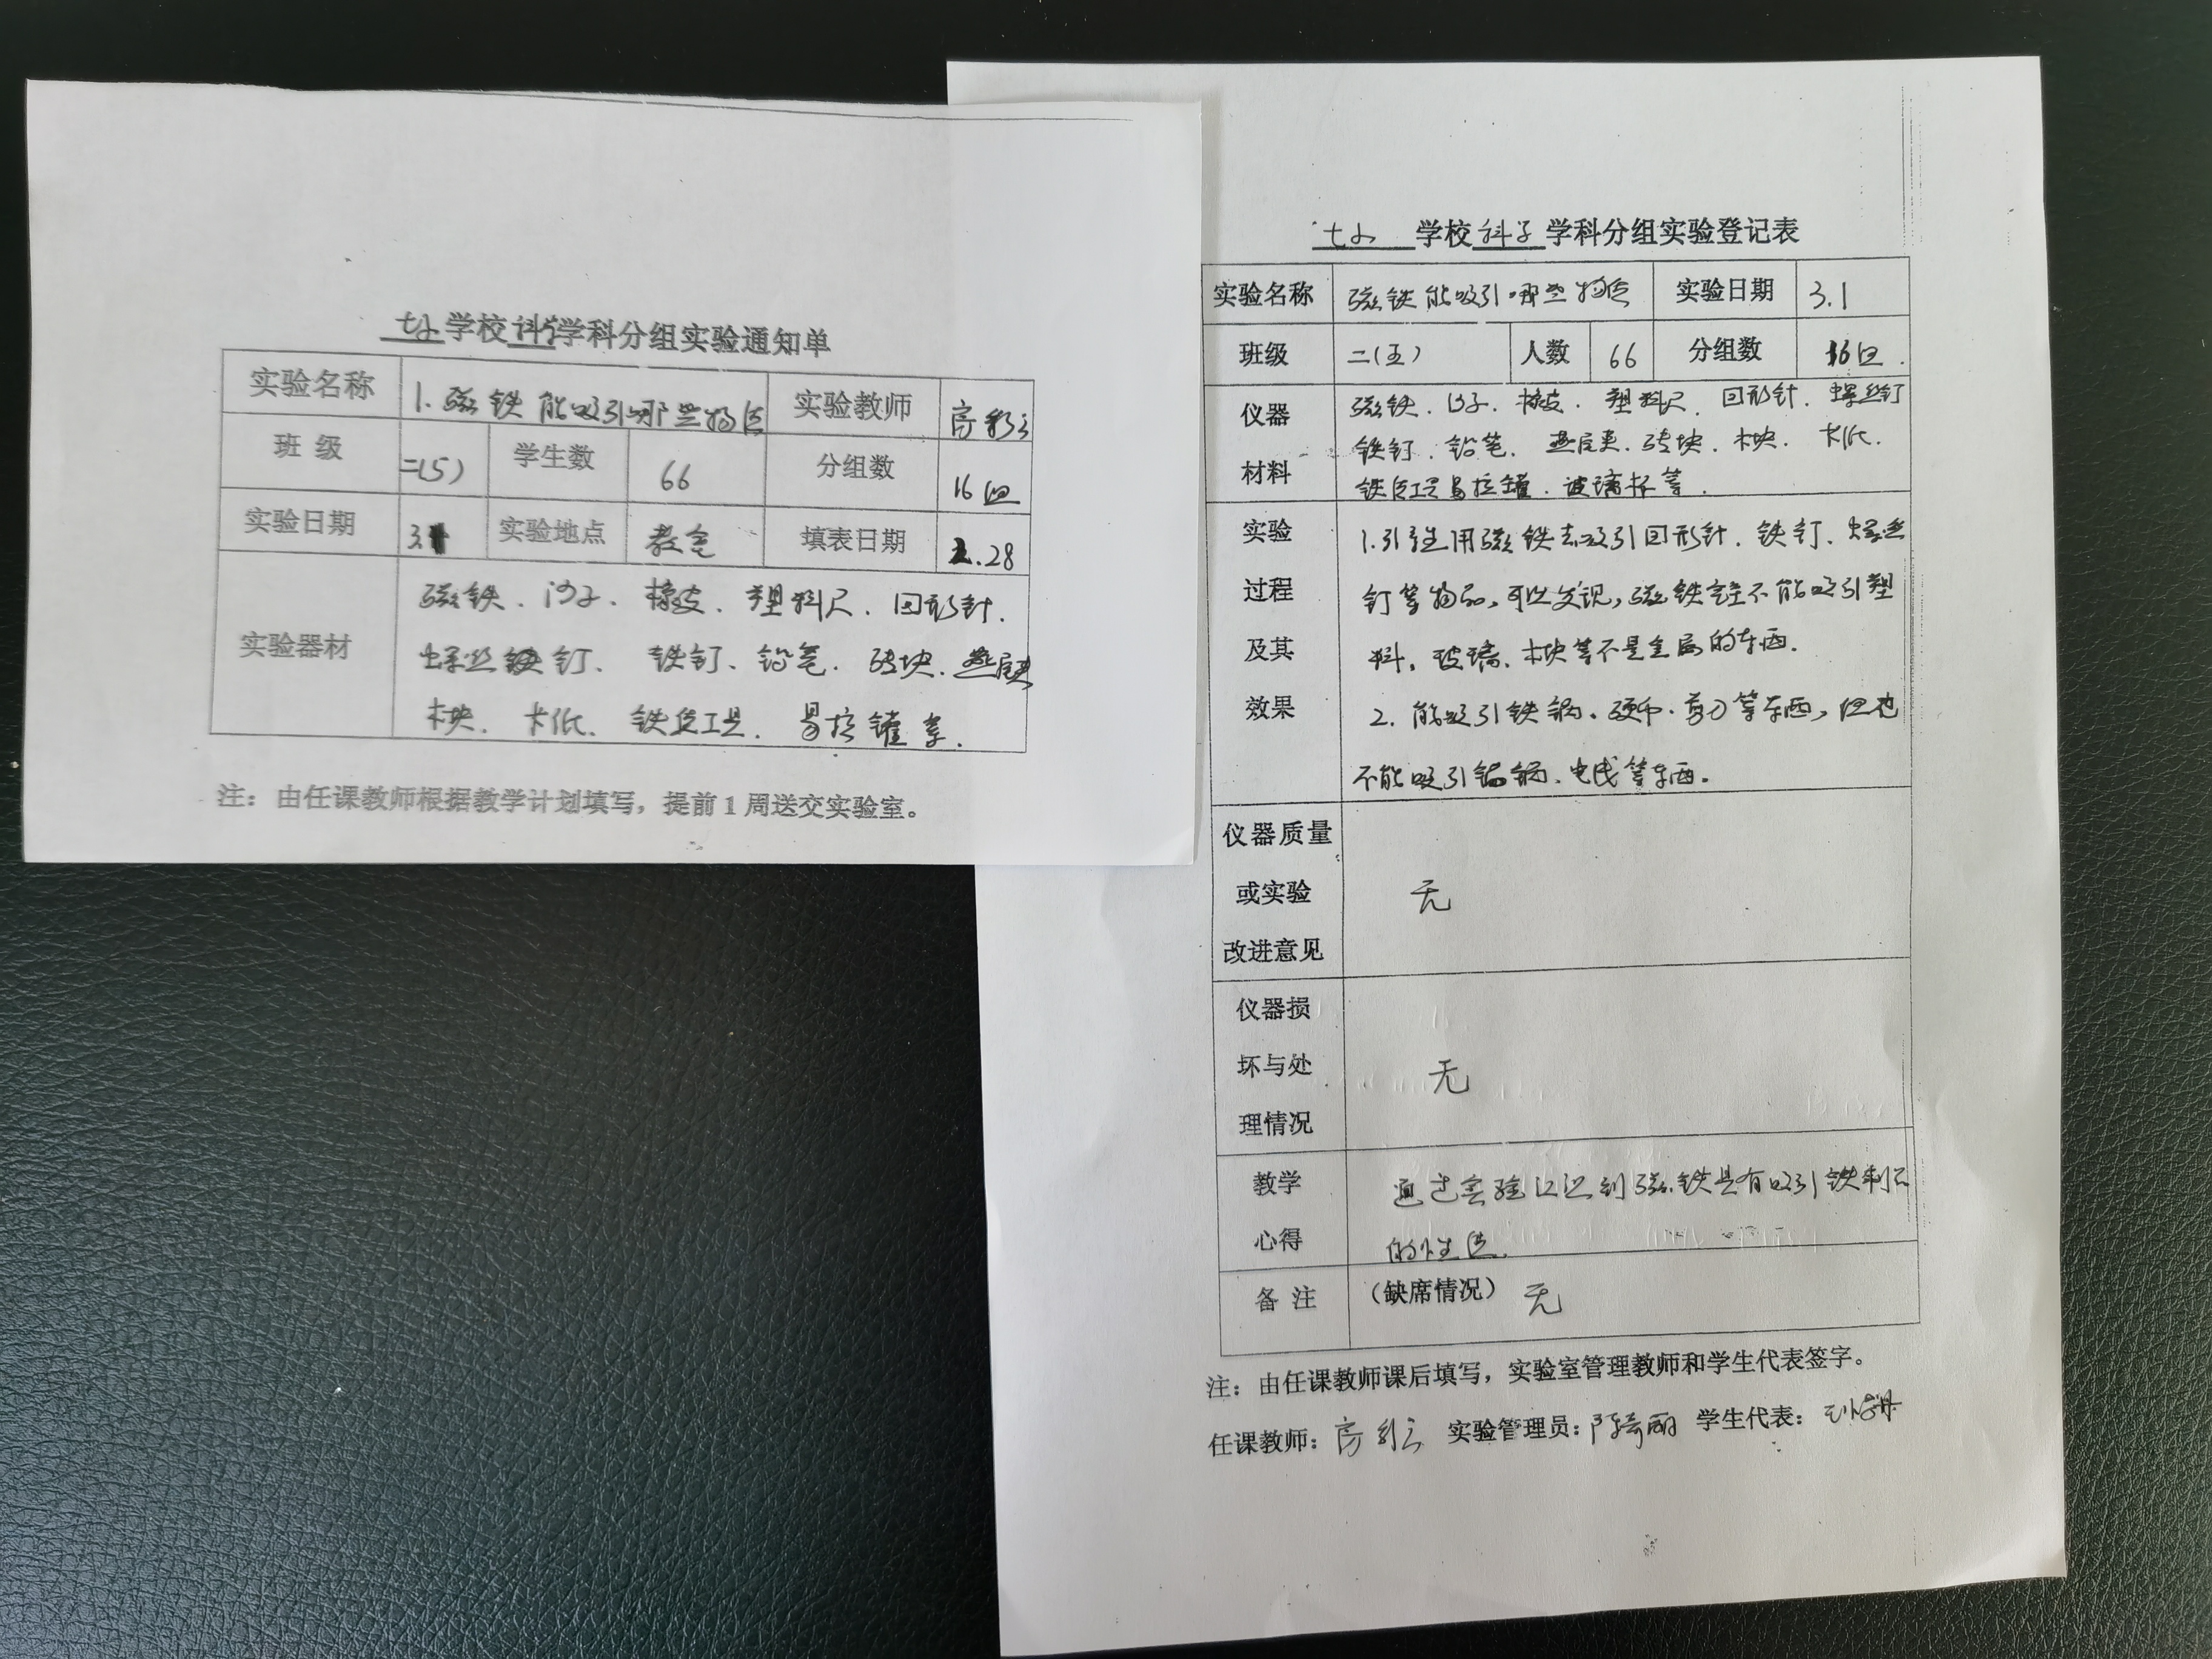 七小学校科学学科分组实验通知单
实验名称 1.磁铁能吸引哪些物质 实验教师 房彩云
班 级 二(5) 学生数 66 分组数 16组
实验日期 3.1 实验地点 教室 填表日期 2.28
实验器材
磁铁、沙子、橡皮、塑料尺、回形针、
螺丝钉、铁钉、铅笔、砖块、燕尾夹
木块、卡纸、铁质工具、易拉罐等.
注：由任课教师根据教学计划填写，提前1周送交实验室。
七小 学校科学学科分组实验登记表
实验名称 磁铁能吸引哪些物质 实验日期 3.1
班级 二(五) 人数 66 分组数 16组.
仪器
材料
磁铁、沙子、橡皮、塑料尺、回形针、螺丝钉
铁钉、铅笔、燕尾夹、砖块、木块、卡纸.
铁质工具易拉罐、玻璃杯等.
实验
过程
及其
效果
1.引导生用磁铁去吸引回形针、铁钉、螺丝
钉等物品,可以发现,磁铁不能吸引塑
料、玻璃、木块等不是金属的东西.
2.能吸引铁锅、硬币、剪刀等东西,但也
不能吸引铝锅、电线等东西.
仪器质量
或实验
改进意见
无
仪器损
坏与处
理情况
无
教学
心得
通过实验认识到磁铁具有吸引铁制品
的性质.
备 注 （缺席情况） 无
注：由任课教师课后填写，实验室管理教师和学生代表签字。
任课教师：房彩云 实验管理员：陈绮丽 学生代表：